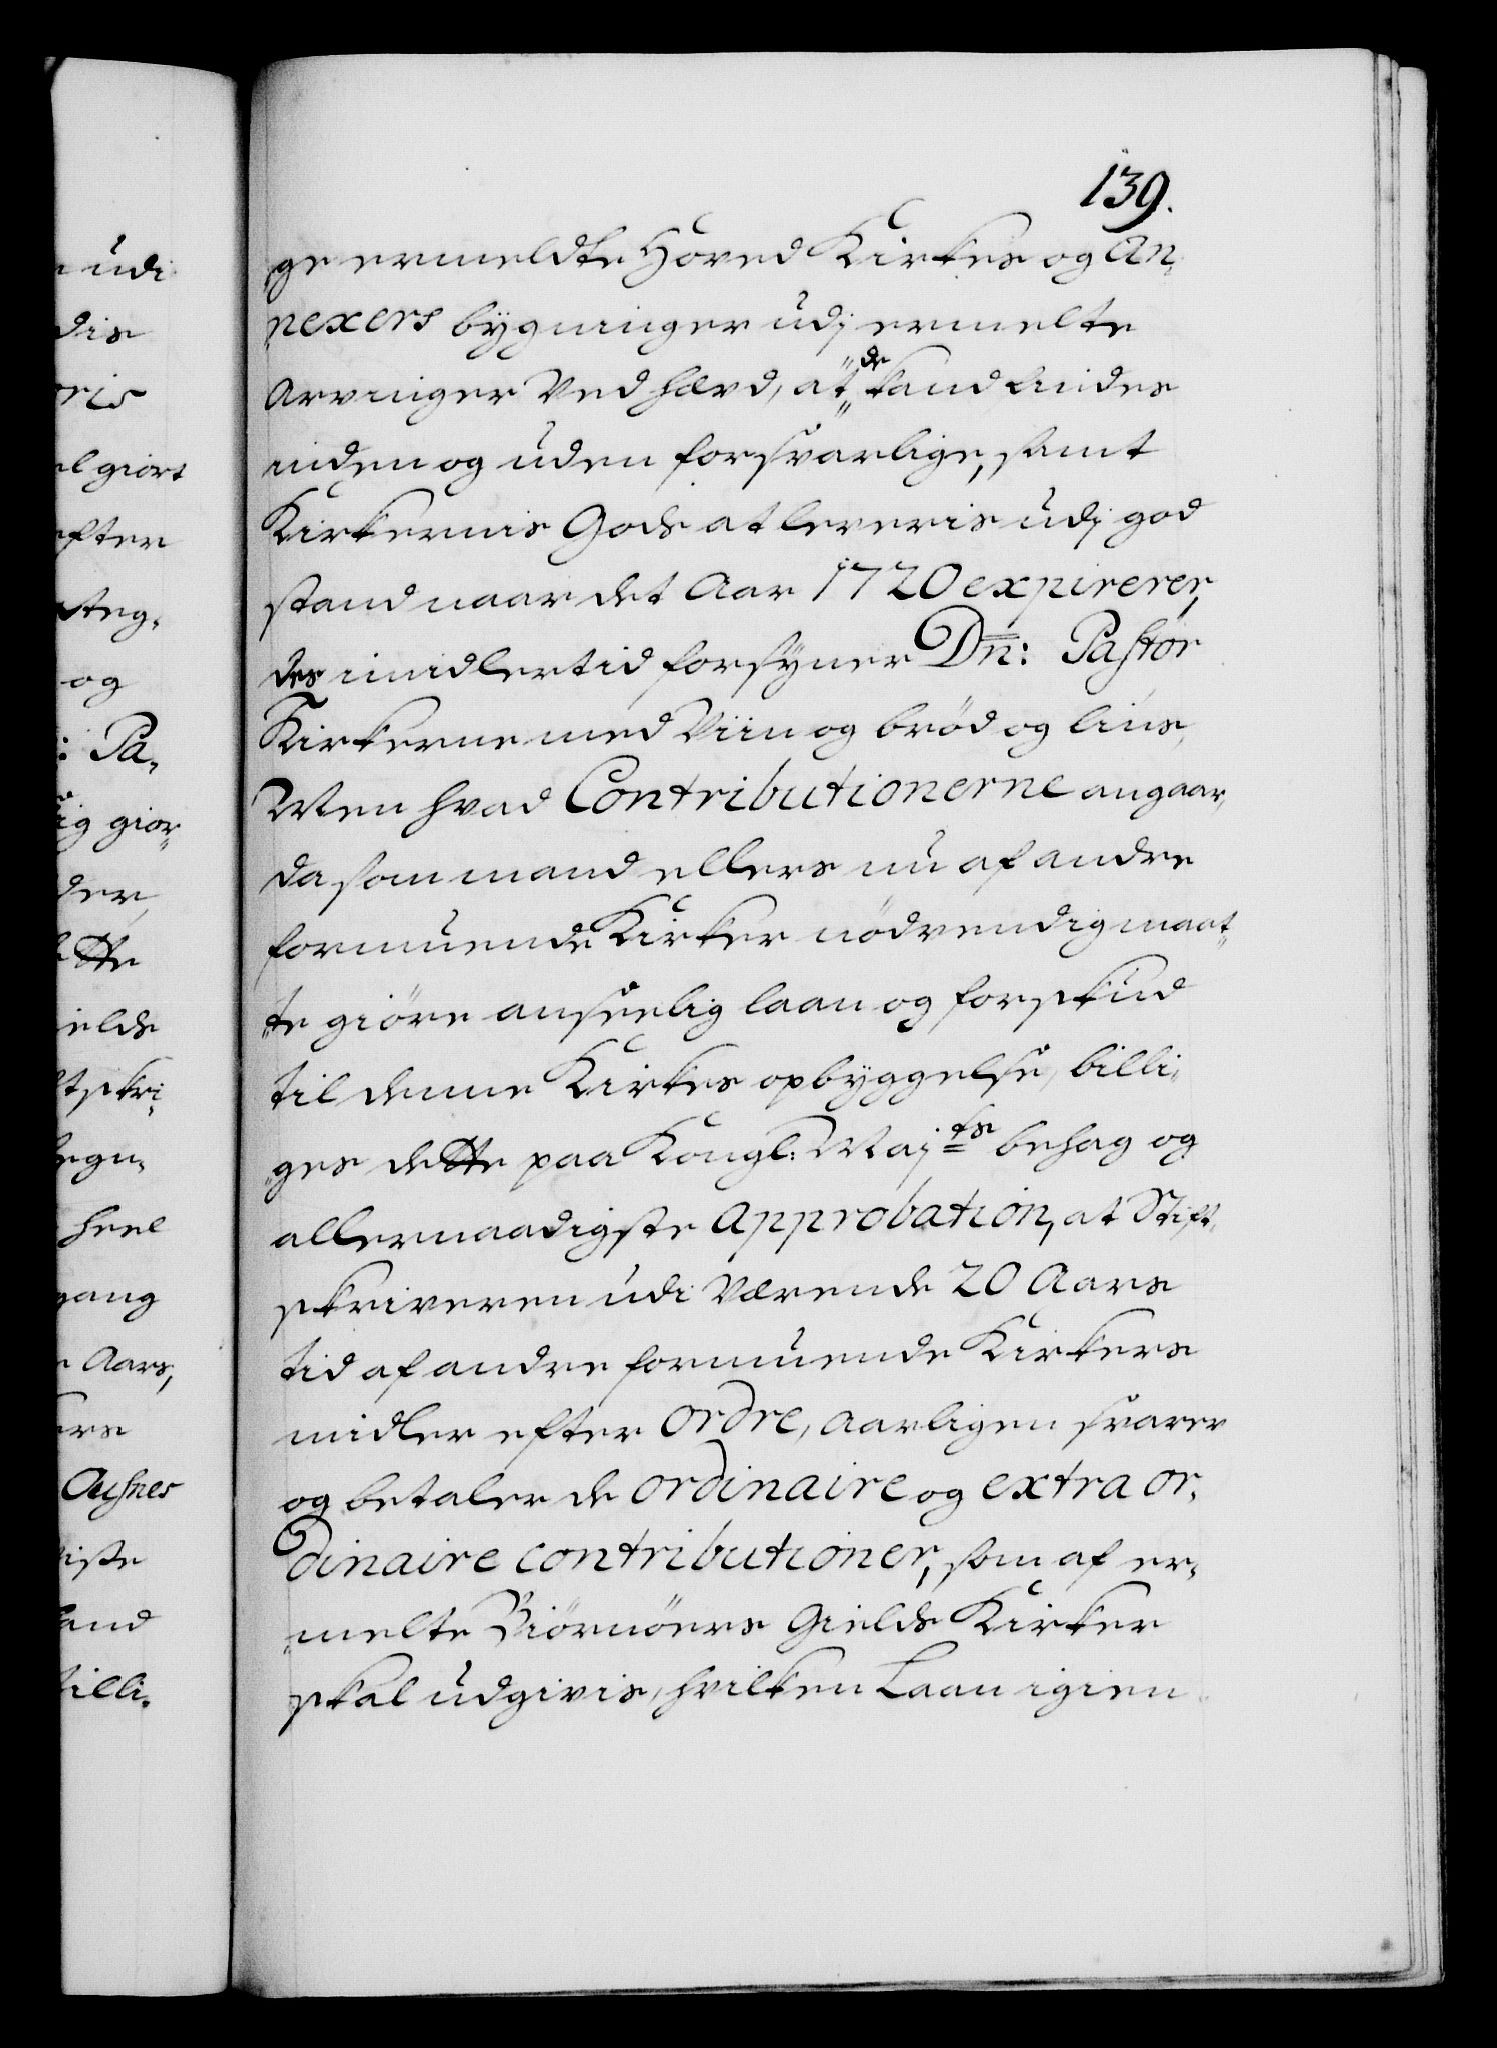 139.
ge ermeldte Hoved Kirkes og An-
nexers bygninger udj ermelte
Arvinger Ved hævd, at de kand kiendes
inden og uden forsvarlige, samt
Kirkernis Gods at leveris udj god
stand naar det Aar 1720 expirerer,
des imidlertid forsÿner Dn: Pastor
Kirkerne med Viin og brød og lius,
Men hvad Contributionerne angaar,
da som mand ellers nu af andre
formuende Kirker nödvendig maat-
te giöre anseelig laan og forskud
til denne Kirkes opbÿggelse, billi-
ges dette paa Kongl: Maj:ts behag og
allernaadigste Approbation, at Stift-
skriveren udi værende 20 Aars
tid af andre formuende Kirkers
midler efter Ordre, aarligen svarer
og betaler de ordinaire og extra or-
dinaire contributioner, som af er-
melte Biörnöers Gields Kirker
skal udgivis, hvilken Laan igien
udi
giort
efter
og
: Pa-
gior-
dette
ielde
heel
gang
Aars,
and